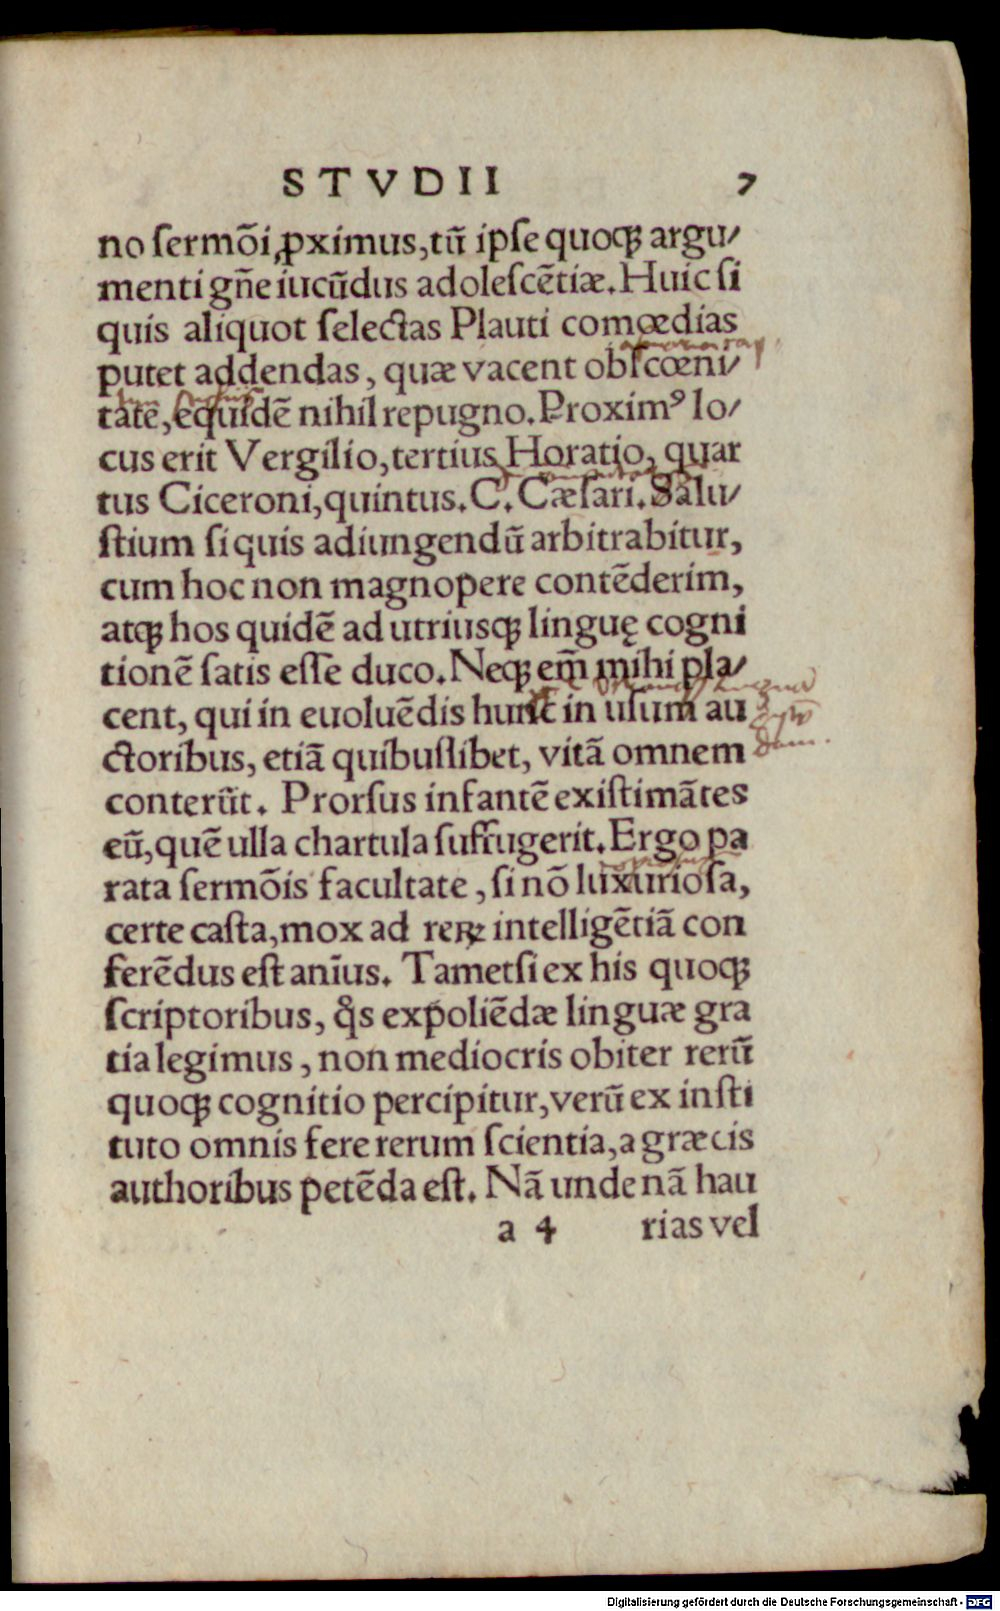 STVDII 7
no sermõi ꝓximus, tũ ipse quoqꝫ argu/
menti gñe iucũdus adolescẽtiæ. Huic si
quis aliquot selectas Plauti comœdias
putet addendas, quæ vacent obscœni/
tate, equidẽ nihil repugno. Proximꝰ lo/
cus erit Vergilio, tertius Horatio, quar
tus Ciceroni, quintus. C. Cæsari. Salu/
stium si quis adiungendũ arbitrabitur,
cum hoc non magnopere contẽderim,
atqꝫ hos quidẽ ad utriusqꝫ linguę cogni
tionẽ satis esse duco. Neqꝫ em̃ mihi pla/
cent, qui in euoluẽdis hunc in usum au
ctoribus, etiã quibuslibet, vitã omnem
conterũt. Prorsus infantẽ existimãtes
eũ, quẽ ulla chartula suffugerit. Ergo pa
rata sermõis facultate, si nõ luxuriosa,
certe casta, mox ad reꝝ intelligẽtiã con
ferẽdus est anĩus. Tametsi ex his quoqꝫ
scriptoribus, q̊s expoliẽdæ linguæ gra
tia legimus, non mediocris obiter rerũ
quoqꝫ cognitio percipitur, verũ ex insti
tuto omnis fere rerum scientia, a græcis
authoribus petẽda est. Nã unde nã hau
a 4 rias vel
Digitalisierung gefördert durch die Deutsche Forschungsgemeinschaft - DFG